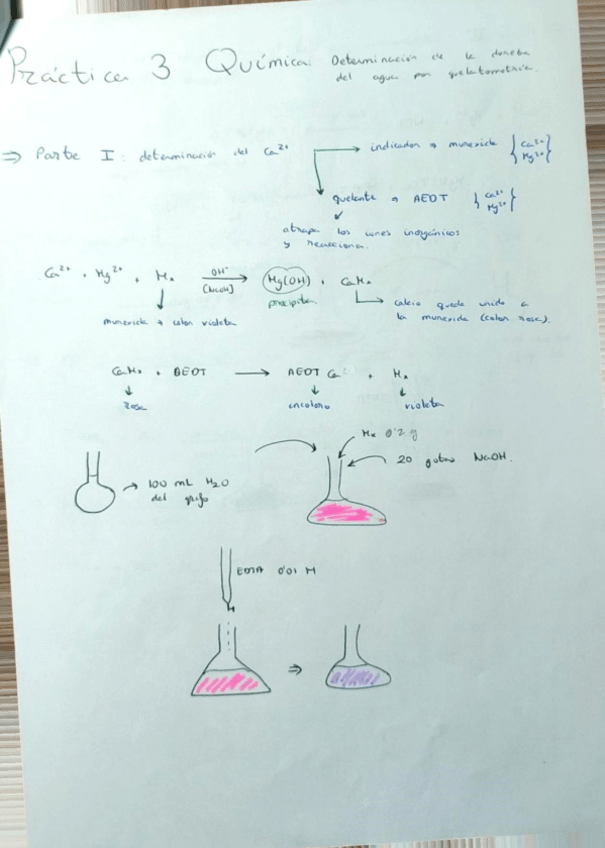 Práctica 3 Química: Determinación de la dureza
del agua por quelatometría.
⇒ Parte I: determinación del Ca²⁺ → indicador → murexida { Ca²⁺ Mg²⁺ }
quelante → AEDT { Ca²⁺ Mg²⁺ }
atrapa los iones inorgánicos
y reacciona.
Ca²⁺ + Mg²⁺ + Mx OH⁻ [NaOH] → Mg(OH) + CaMx
precipita
murexida → color violeta
calcio queda unido a
la murexida (color rosa).
CaMx + AEDT → AEDT Ca²⁻ + Mx
rosa incoloro violeta
Mx 0'2 g
20 gotas NaOH.
→ 100 mL H₂O
del grifo
EDTA 0'01 M
⇒